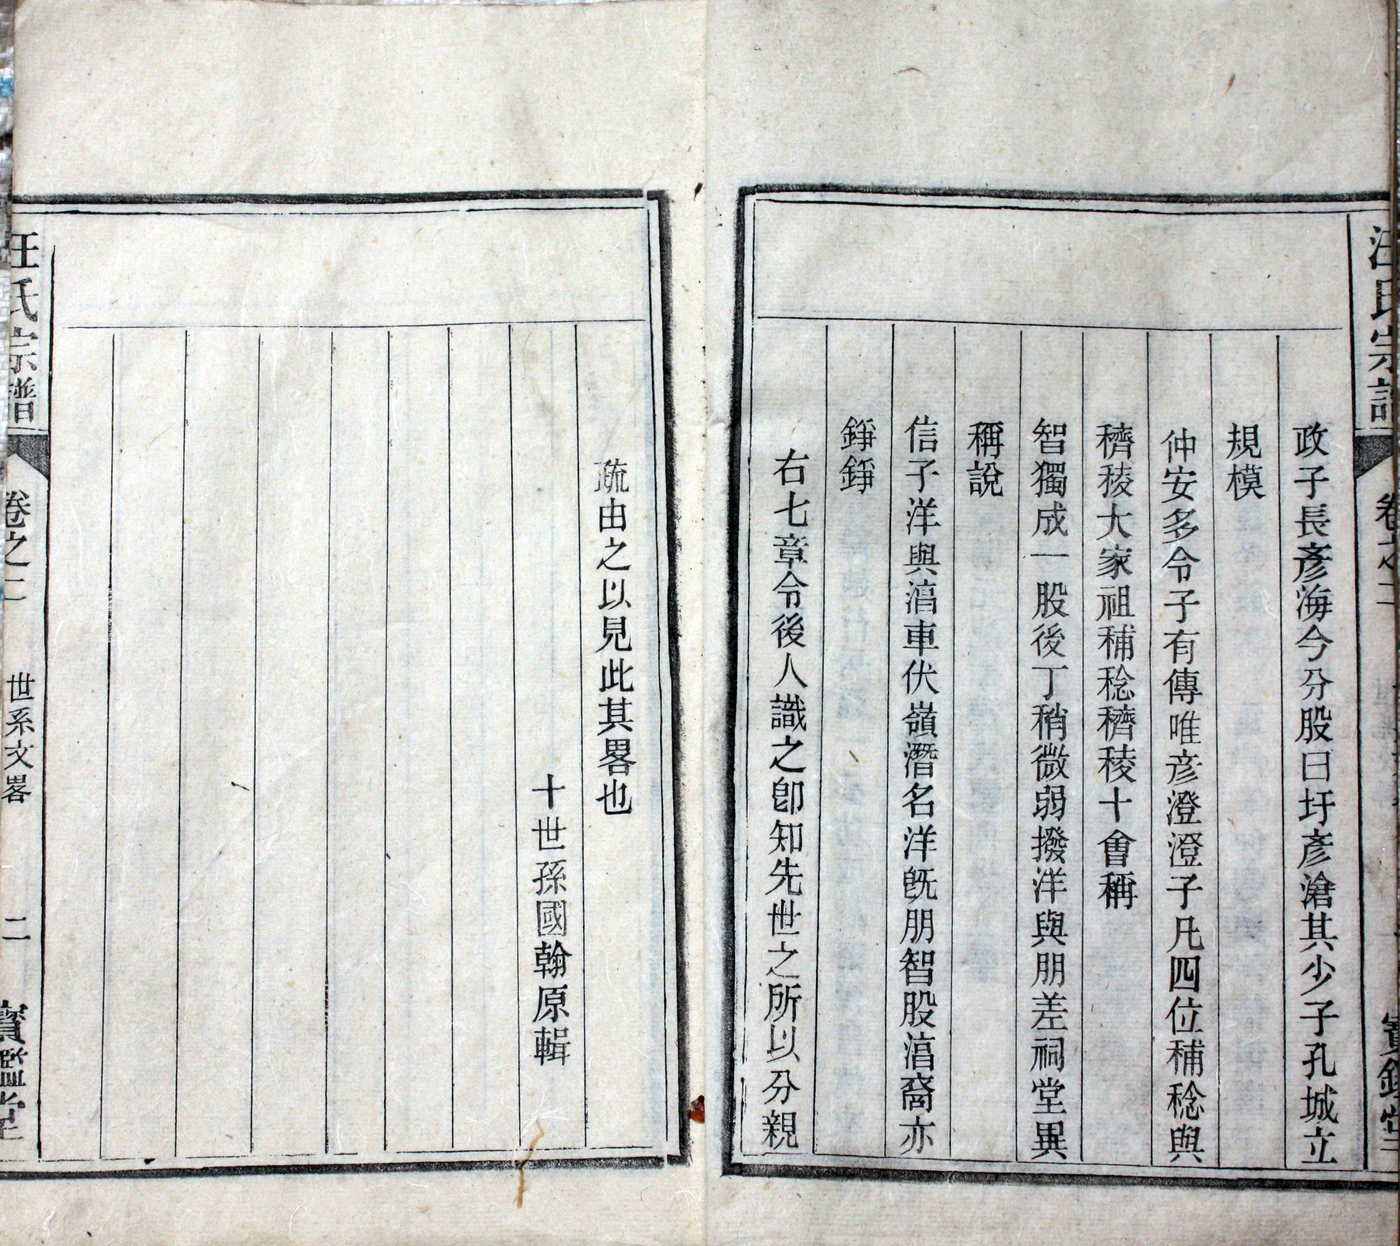 汪氏宗譜
卷之二
寶鑑堂
政子長彥海今分股曰圩彥滄其少子孔城立
規模
仲安多令子有傳唯彥澄澄子凡四位稱稔與
穧稜大家祖補稔穧稜十會稱
智獨成一股後丁稍微弱撥洋與朋差祠堂異
稱說
信子洋與湻車伏嶺潛名洋旣朋智股湻裔亦
錚錚
右七章令後人識之卽知先世之所以分親
疏由之以見此其畧也
十世孫國翰原輯
汪氏宗譜
卷之二
世系文畧
二
寶鑑堂